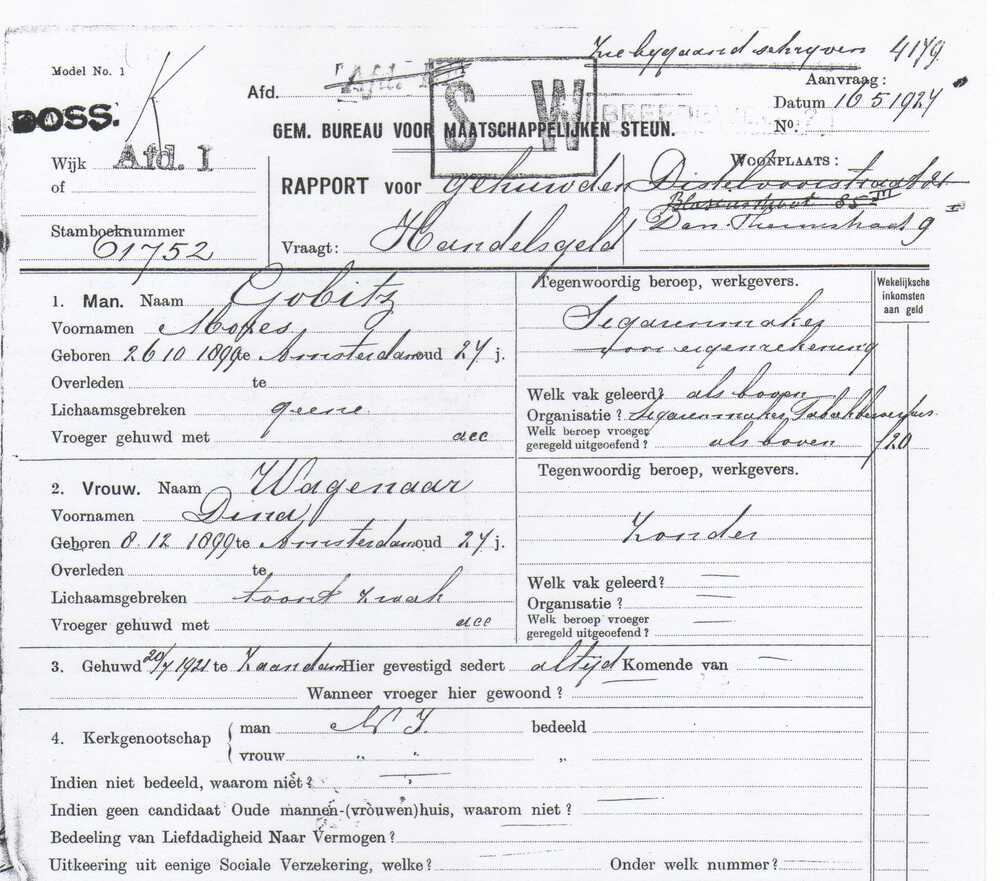 Zie bijgaand schrijven 4179
Model No. 1
Afd.
S W
Aanvraag:
Datum 16 5 1924
No:
DOSS. K
GEM. BUREAU VOOR MAATSCHAPPELIJKEN STEUN.
Wijk Afd. I
of
RAPPORT voor gehuwden
WOONPLAATS:
Stamboeknummer
61752
Vraagt: Handelsgeld
9
1. Man. Naam Gobitz
Voornamen Mozes
Geboren 26 10 1899 te Amsterdam oud 24 j.
Overleden te
Lichaamsgebreken geene
Vroeger gehuwd met
Tegenwoordig beroep, werkgevers.
Sigarenmaker
voor eigen rekening
Welk vak geleerd? als boven
Organisatie? Sigarenmaker
Welk beroep vroeger
geregeld uitgeoefend? als boven
Wekelijksche
inkomsten
aan geld
f 20
2. Vrouw. Naam Wagenaar
Voornamen Dina
Geboren 8 12 1899 te Amsterdam oud 24 j.
Overleden te
Lichaamsgebreken toont zwak
Vroeger gehuwd met
Tegenwoordig beroep, werkgevers.
Zonder
Welk vak geleerd? —
Organisatie? —
Welk beroep vroeger
geregeld uitgeoefend? —
3. Gehuwd 20/7 1921 te Zaandam Hier gevestigd sedert altijd Komende van —
Wanneer vroeger hier gewoond? —
4. Kerkgenootschap { man N I. bedeeld
vrouw „ „ „
Indien niet bedeeld, waarom niet?
Indien geen candidaat Oude mannen-(vrouwen)huis, waarom niet? —
Bedeeling van Liefdadigheid Naar Vermogen? —
Uitkeering uit eenige Sociale Verzekering, welke? — Onder welk nummer? —